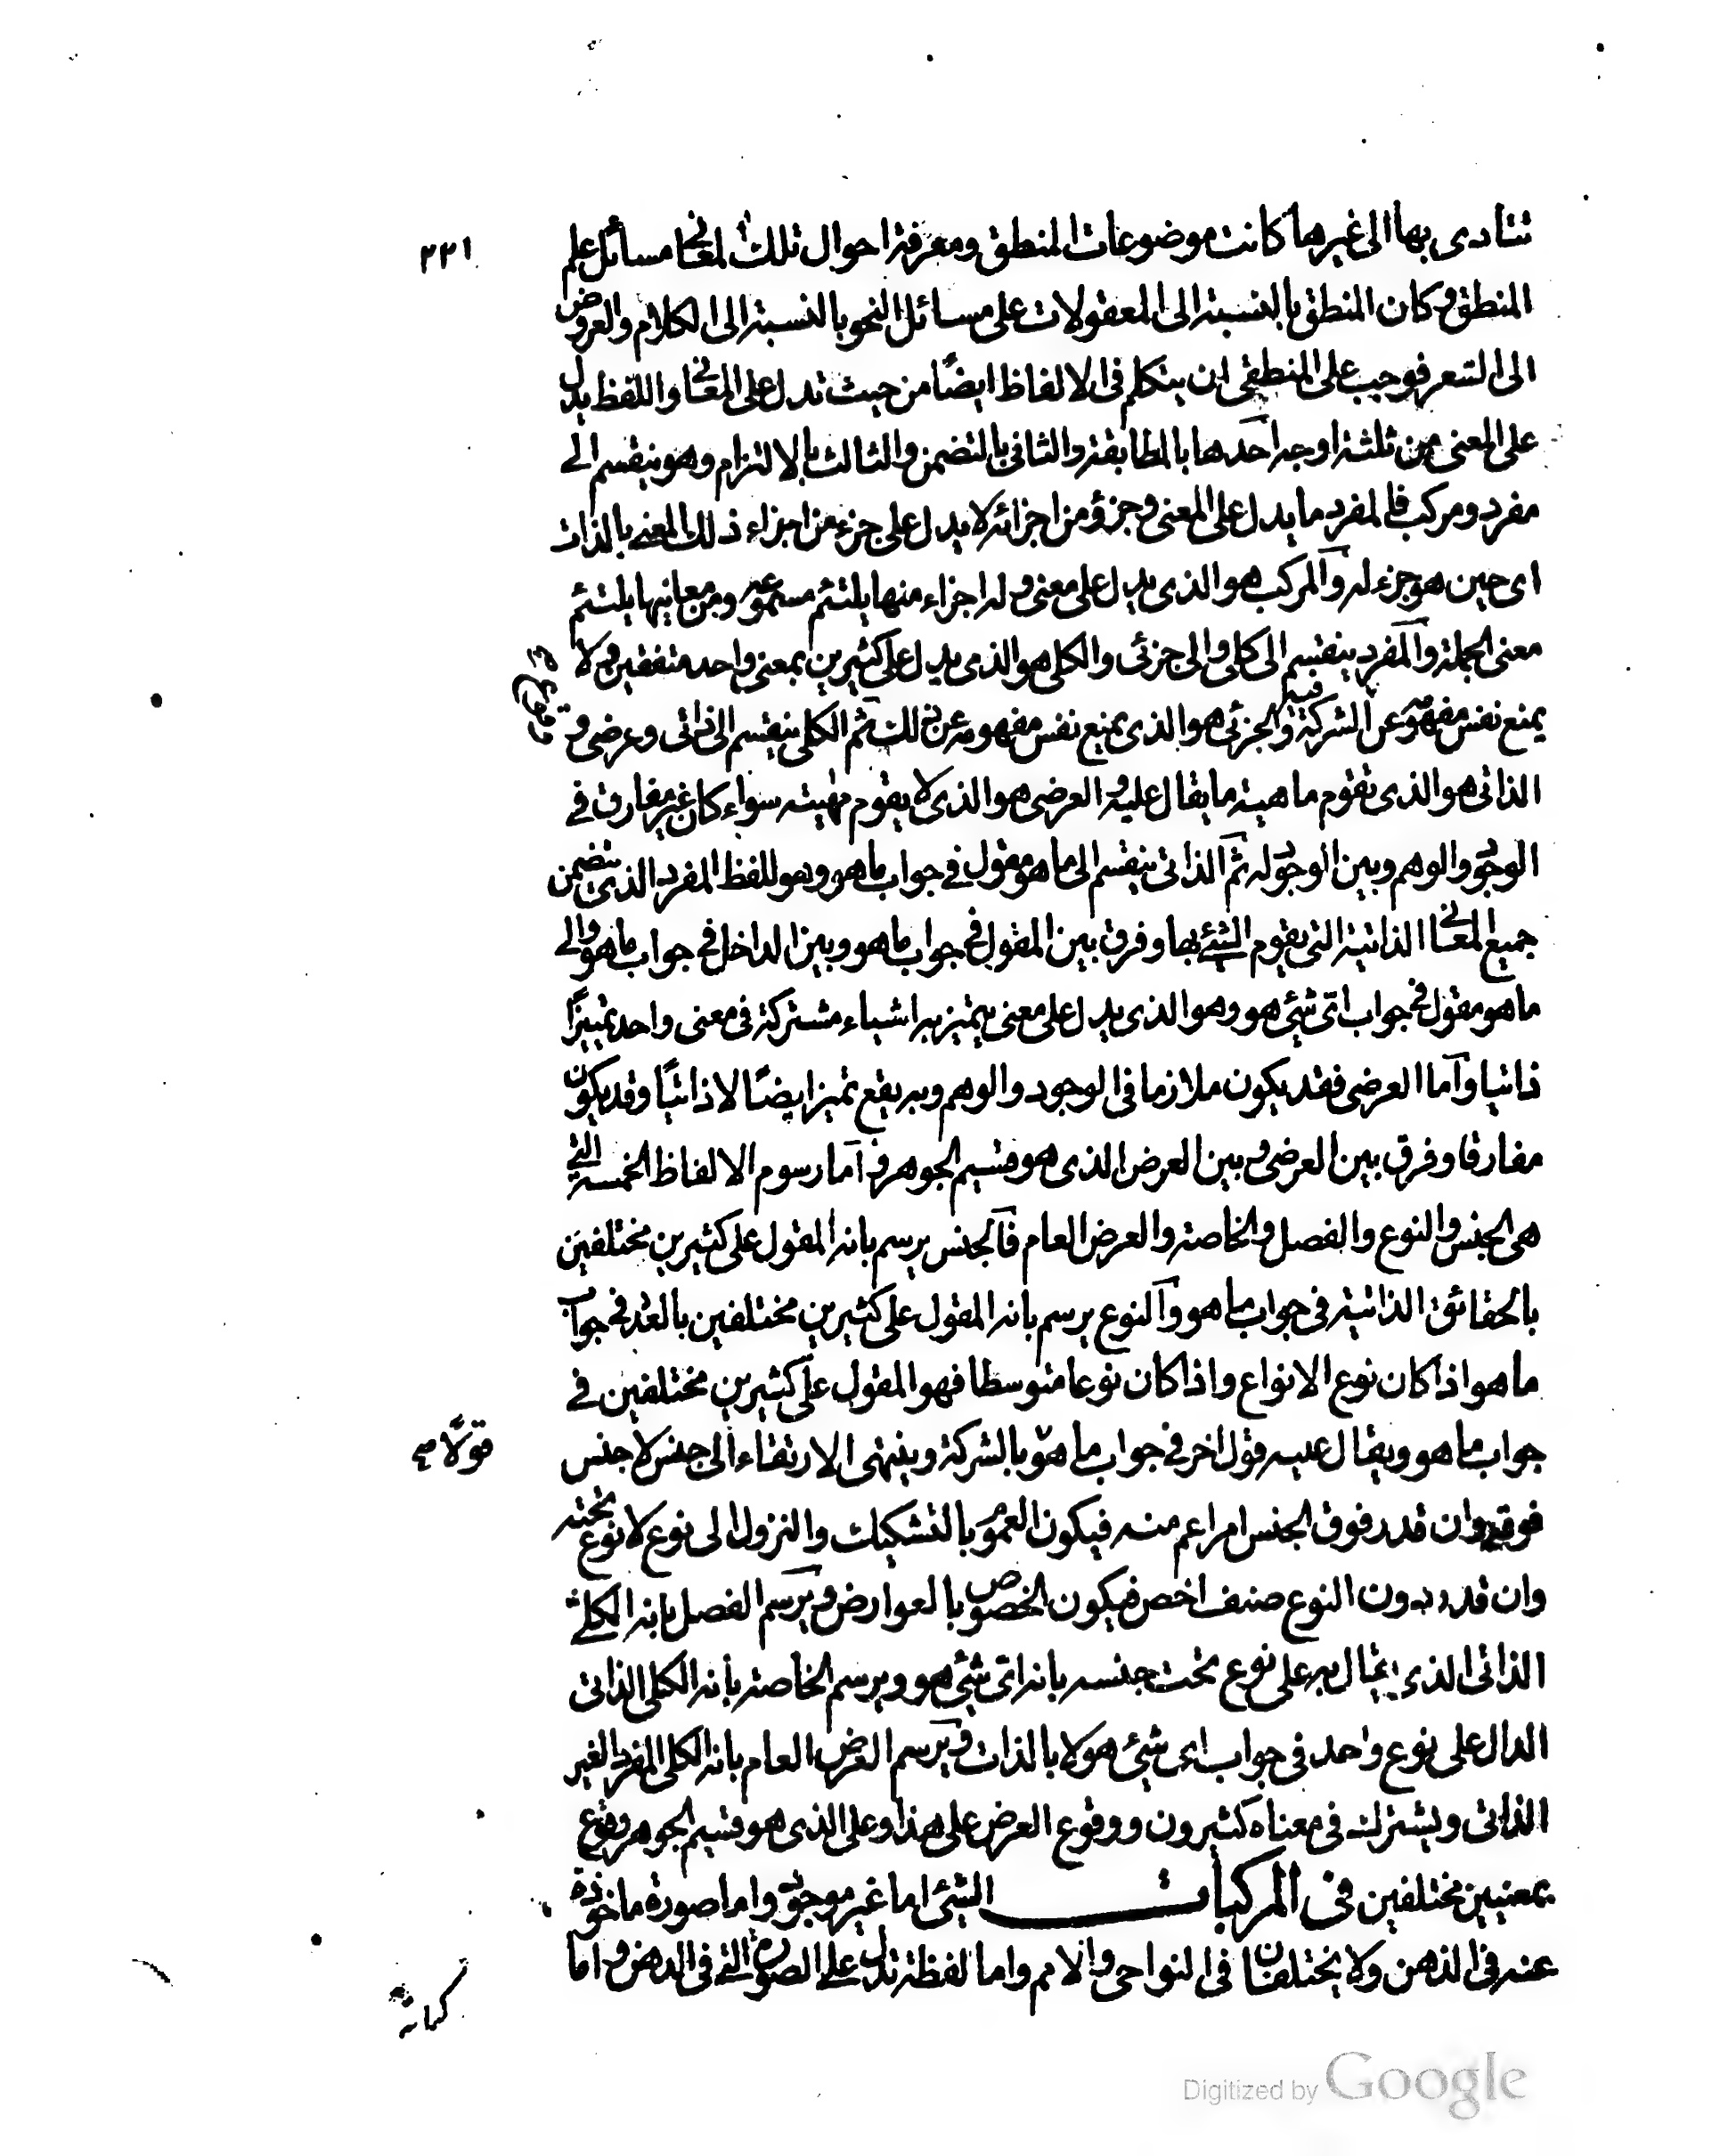 ٢٢١
تتادى بها الى غيرها كانت موضوعات المنطق ومعرفة احوال تلك المعانى مسائل علم
المنطق وكان المنطق بالنسبة الى المعقولات على مسائل النحو بالنسبة الى الكلام والعروض
الى الشعر فوجب على المنطقى ان يتكلم فى الالفاظ ايضًا من حيث تدل على المعانى واللفظ يدل
على المعنى من ثلثة اوجه احدها بالمطابقة والثانى بالتضمن والثالث بالالتزام وهو ينقسم الى
مفرد ومركب فالمفرد ما يدل على المعنى وجزؤ من اجزائه لا يدل على جزء من اجزاء ذلك المعنى بالذات
اى حين هو جزء له والمركب هو الذى يدل على معنى وله اجزاء منها يلتئم مسموعه ومن معانيها يلتئم
معنى الجملة والمفرد ينقسم الى كلى والى جزئى والكلى هو الذى يدل على كثيرين بمعنى واحد متفقين ولا
يمنع نفس مفهومه عن الشركة فيه والجزئى هو الذى يمنع نفس مفهومه عن ذلك ثم الكلى ينقسم الى ذاتى وعرضى و
الذاتى هو الذى تقوم ماهية ما يقال عليه و العرضى هو الذى لا يقوم مهيته سواء كان غير مفارق فى
الوجود والوهم وبين الوجود له ثم الذاتى ينقسم الى ما هو مقول فى جواب ما هو وهو اللفظ المفرد الذى يتضمن
جميع المعانى الذاتية التى يقوم الشئ بها وفرق بين المقول فى جواب ما هو وبين الداخل فى جواب ما هو والى
ما هو مقول فى جواب اى شئ هو وهو الذى يدل على معنى يتميز به اشياء مشتركة فى معنى واحد تمييزًا
ذاتيا واما العرضى فقد يكون ملازما فى الوجود والوهم وبه يقع تميز ايضًا لا ذاتيًا وقد يكون
مفارقا وفرق بين العرضى وبين العرض الذى هو قسيم الجوهر و اما رسوم الالفاظ الخمسة التى
هى الجنس والنوع والفصل والخاصة والعرض العام فالجنس يرسم بانه المقول على كثيرين مختلفين
بالحقائق الذاتية فى جواب ما هو والنوع يرسم بانه المقول على كثيرين مختلفين بالعدد فى جواب
ما هو اذا كان نوع الانواع واذا كان نوعا متوسطا فهو المقول على كثيرين مختلفين فى
جواب ما هو ويقال عليه قول اخر فى جواب ما هو بالشركة وينتهى الارتقاء الى جنس لا جنس
قولًا صح
فوقه وان قدر فوق الجنس امر اعم منه فيكون العموم بالتشكيك والنزول الى نوع لا نوع تحته
وان قدر دون النوع صنف اخص فيكون الخصوص بالعوارض ويرسم الفصل بانه الكلى
الذاتى الذى يقال به على نوع تحت جنسه بانه اى شئ هو ويرسم الخاصة بانه الكلى الذاتى
الدال على نوع واحد فى جواب اى شئ هو لا بالذات ويرسم العرض العام بانه الكلى المفرد الغير
الذاتى ويشترك فى معناه كثيرون ووقوع العرض على هذا وعلى الذى هو قسيم الجوهر وقوع
بمعنيين مختلفين فى المركبات الشئ اما غير موجود واما صورة ماخوذة
عنه فى الذهن ولا يختلفان فى النواحى والامم واما لفظة تدل على الصورة التى فى الذهن واما
كماية
Digitized by Google